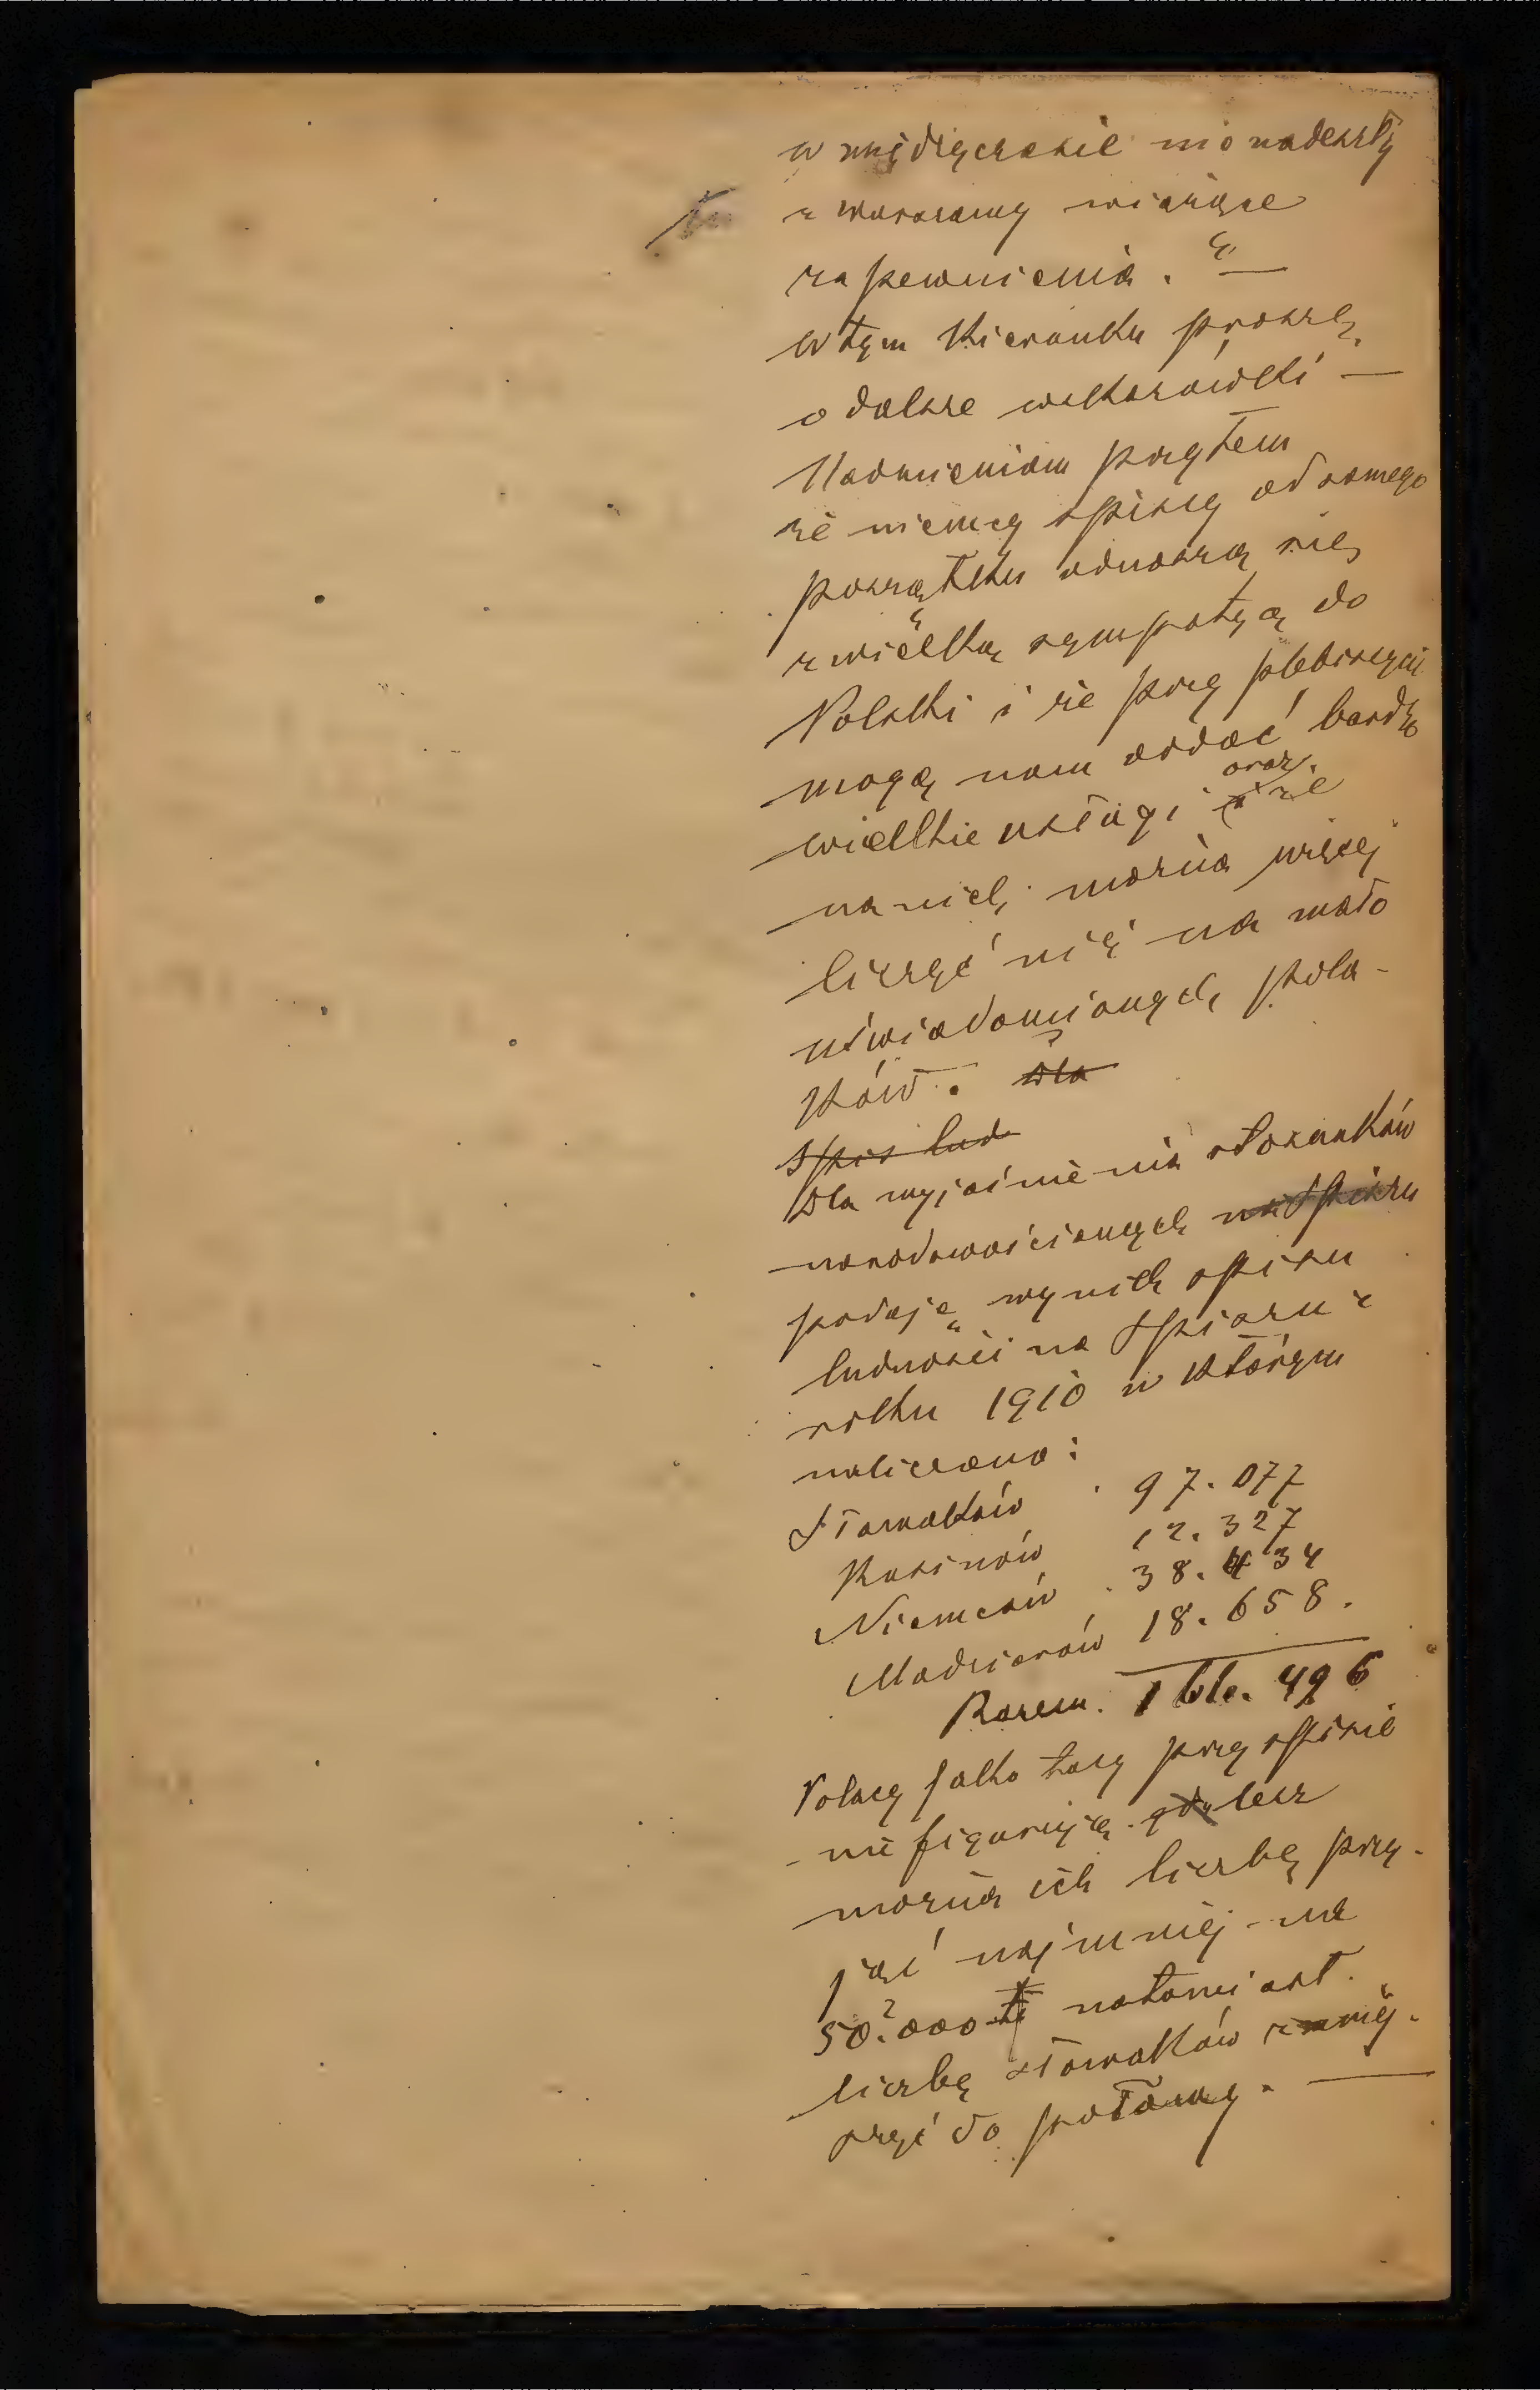 w międzyczasie nie nadeszły
z warszawy wiążące
zapewnienia." —
W tym Kierunku proszę
o dalsze wskazówki —
Nadmieniam przytem
że niemcy spiscy od samego
początku odnoszą się
z wielką sympatyą do
Polski i że przy plebiscycie
mogą nam oddać bardzo
wielkie usługi oraz że
na nich można więcej
liczyć niż na mało
uświadomionych Pola-
ków. Dla
Spis lud
Dla wyjaśnienia stosunków
narodowościowych na Spiszu
podaję wynik spisu
ludności na Spiszu z
roku 1910 w którym
naliczono:
Słowaków 97.077
Rusinów 12.327
Niemców 38.434
Madziarów 18.658.
Razem. 166.496
Polacy jako tacy przy spisie
nie figurują gdy lecz
można ich liczbę przy-
jąć najmniej na
50.000 natomiast
liczbę słowaków zmniej-
szyć do połowy. —